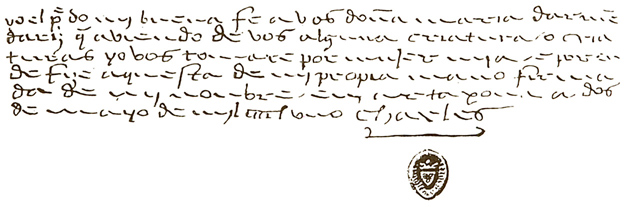 yo el p̄ do my buena fe a vos doña maria darmē
dariz q̄ aviendo de vos alguna criatura o cria
turas yo vos tomare por muler mya e por en
de fize aquesta de my propia mano firma
da de my nombre en artaxona a dos
de mayo de myl iiii l uno Charles